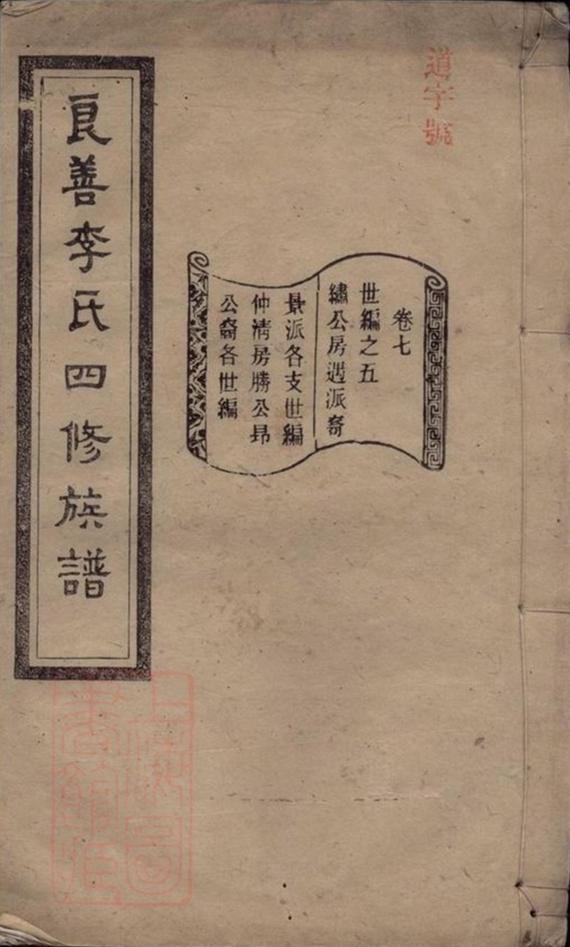 道字號
卷七
世編之五
繡公房遇派裔
景派各支世編
仲清房勝公昂
公裔各世編
良善李氏四修族譜